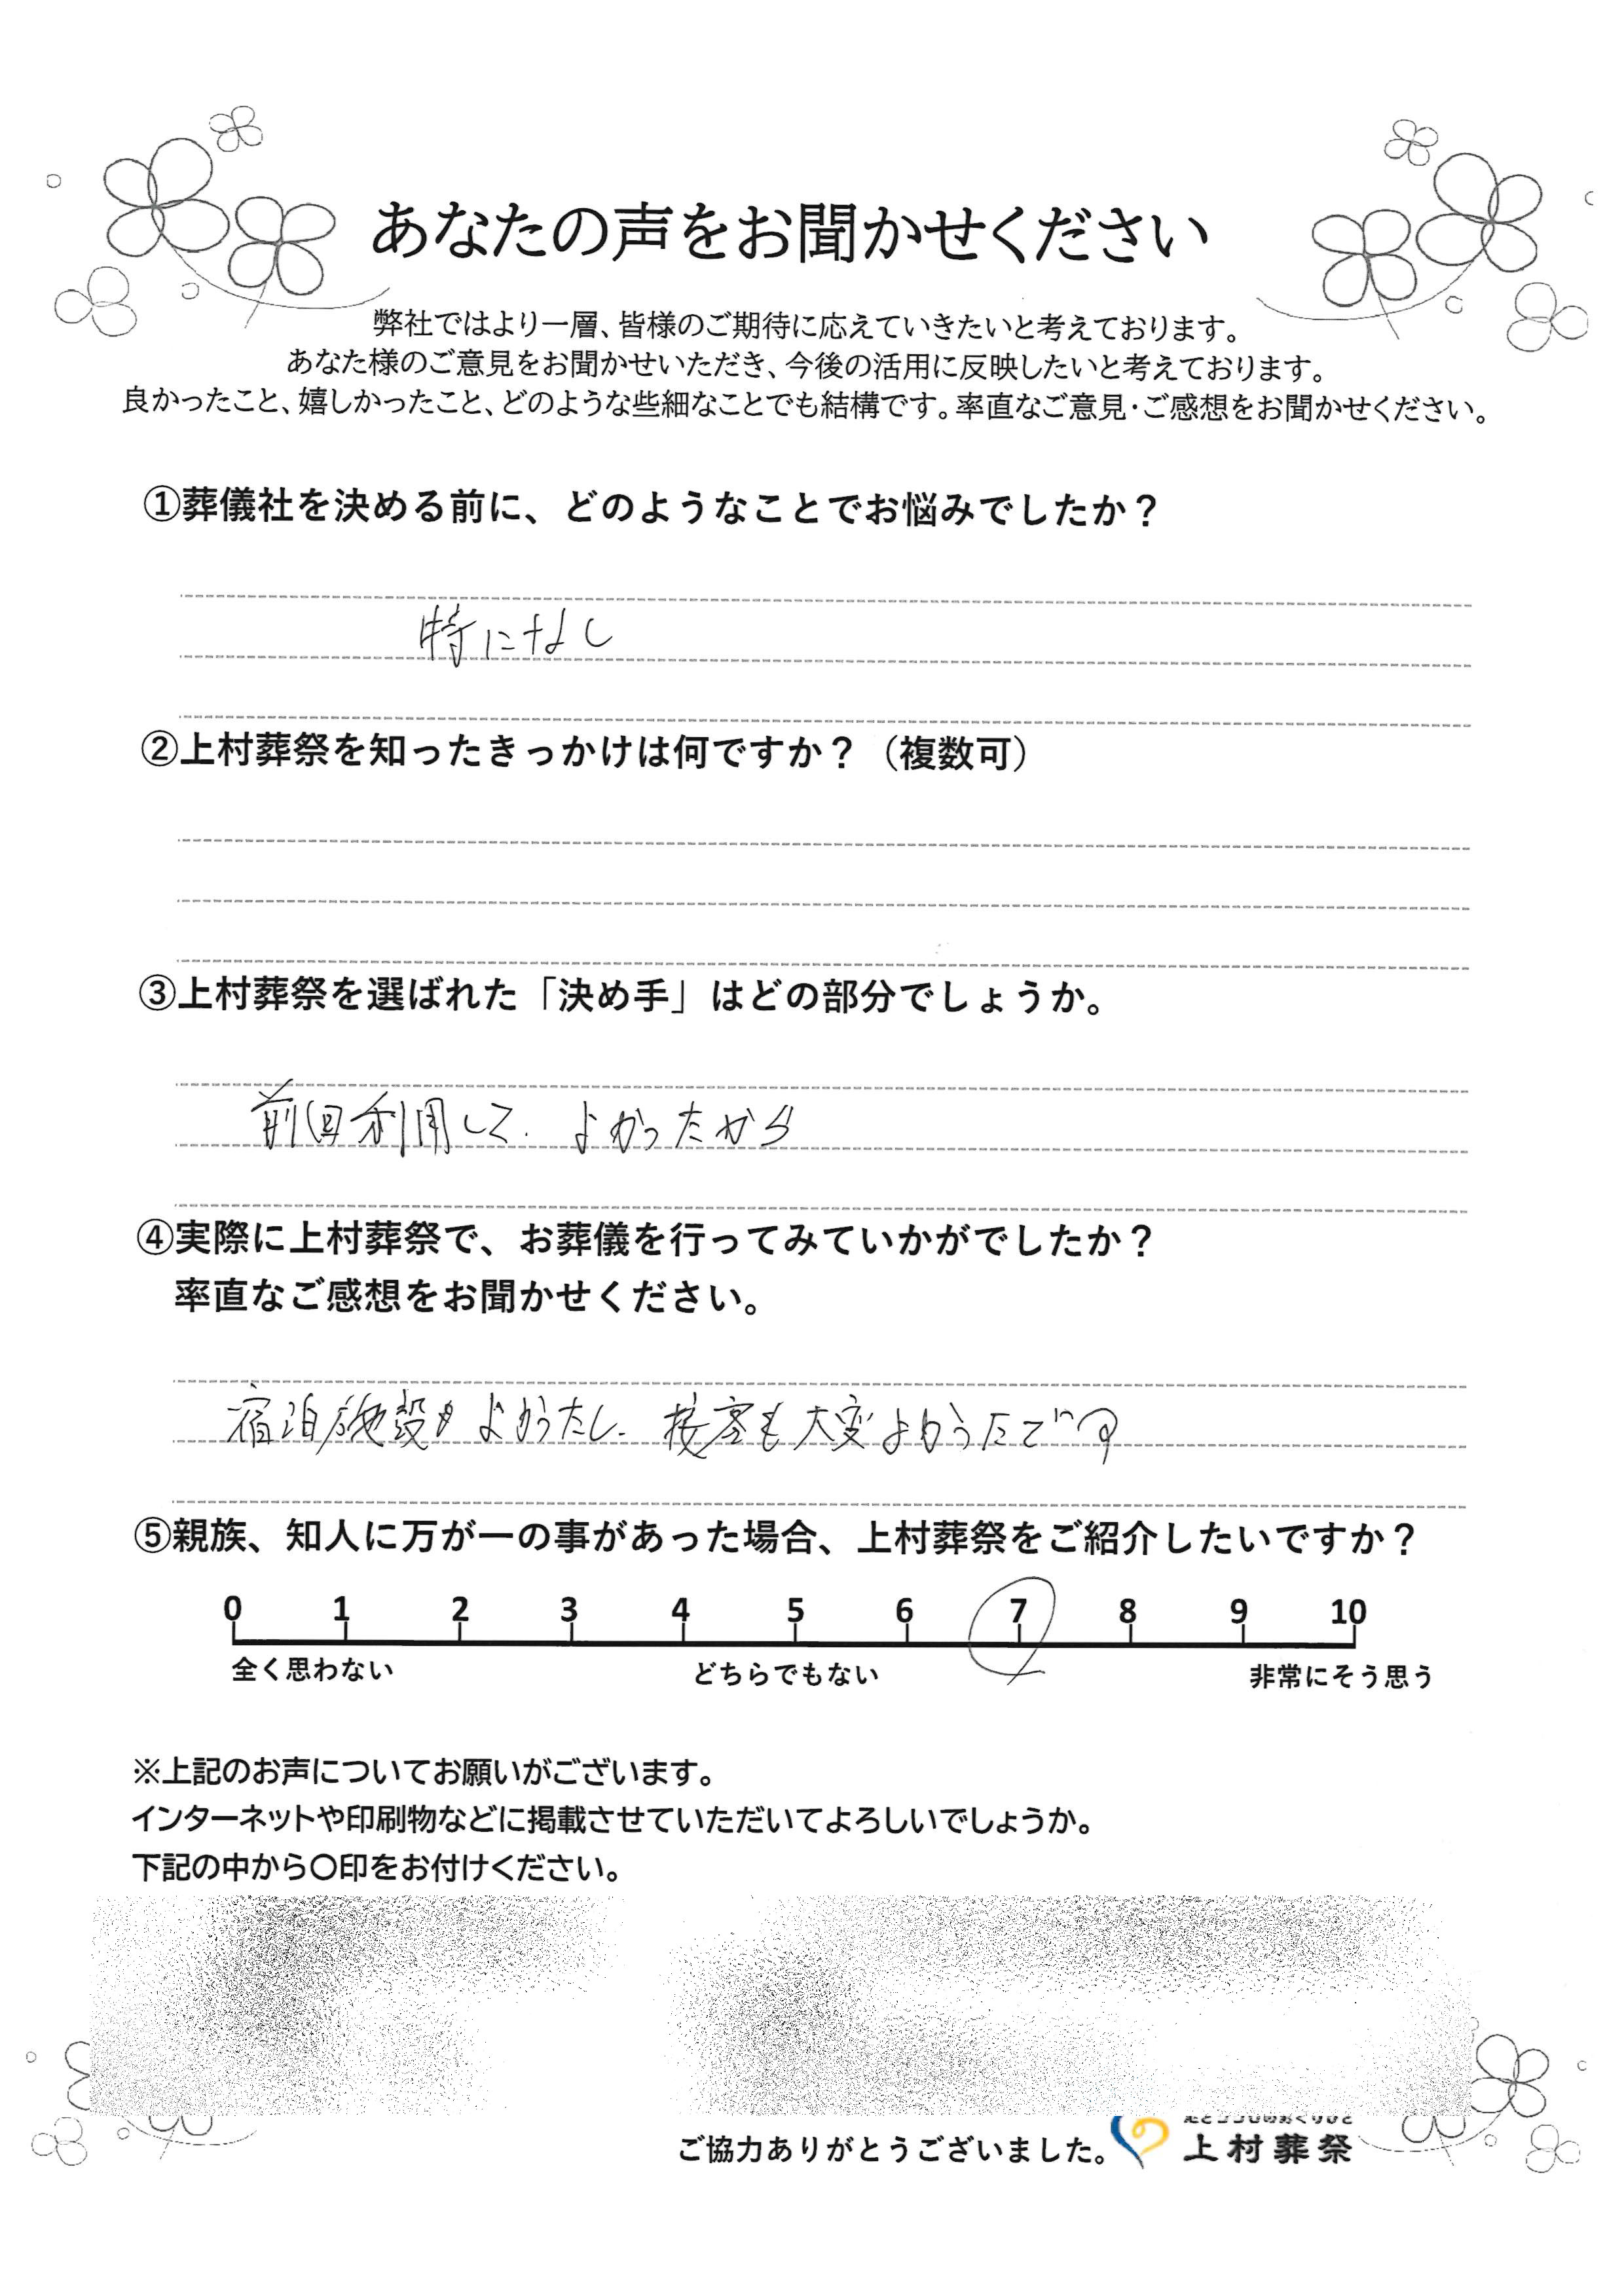 あなたの声をお聞かせください
弊社ではより一層、皆様のご期待に応えていきたいと考えております。
あなた様のご意見をお聞かせいただき、今後の活用に反映したいと考えております。
良かったこと、嬉しかったこと、どのような些細なことでも結構です。率直なご意見・ご感想をお聞かせください。
①葬儀社を決める前に、どのようなことでお悩みでしたか？
特になし
②上村葬祭を知ったきっかけは何ですか？（複数可）
③上村葬祭を選ばれた「決め手」はどの部分でしょうか。
前回利用して、よかったから
④実際に上村葬祭で、お葬儀を行ってみていかがでしたか？
率直なご感想をお聞かせください。
宿泊施設もよかったし、接客も大変よかったです
⑤親族、知人に万が一の事があった場合、上村葬祭をご紹介したいですか？
0 1 2 3 4 5 6 7 8 9 10
全く思わない どちらでもない 非常にそう思う
※上記のお声についてお願いがございます。
インターネットや印刷物などに掲載させていただいてよろしいでしょうか。
下記の中から〇印をお付けください。
ご協力ありがとうございました。
上村葬祭